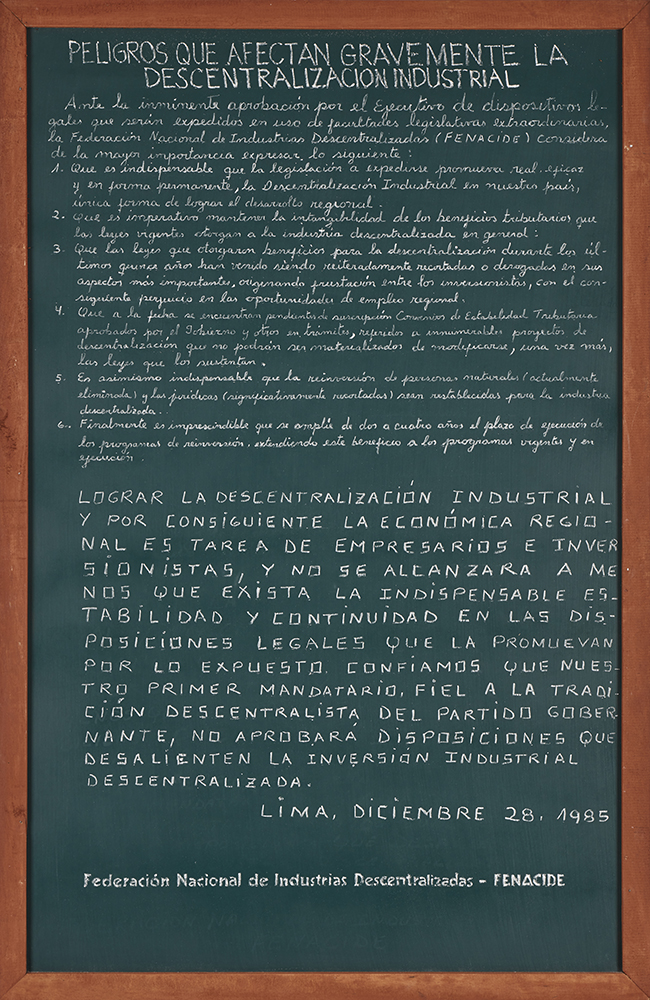 PELIGROS QUE AFECTAN GRAVEMENTE LA
DESCENTRALIZACION INDUSTRIAL
Ante la inminente aprobación por el Ejecutivo de dispositivos le-
gales que serán expedidos en uso de facultades legislativas extraordinarias,
la Federación Nacional de Industrias Descentralizadas (FENACIDE) considera
de la mayor importancia expresar lo siguiente:
1. Que es indispensable que la legislación a expedirse promueva real, eficaz
y en forma permanente, la Descentralización Industrial en nuestro país,
única forma de lograr el desarrollo regional.
2. Que es imperativo mantener la intangibilidad de los beneficios tributarios que
las leyes vigentes otorgan a la industria descentralizada en general:
3. Que las leyes que otorgaron beneficios para la descentralización durante los úl-
timos quince años han venido siendo reiteradamente recortadas o derogadas en sus
aspectos más importantes, originando frustación entre los inversionistas, con el con-
siguiente perjuicio en las oportunidades de empleo regional.
4. Que a la fecha se encuentran pendientes de suscripción Convenios de Estabilidad Tributaria
aprobados por el Gobierno y otros en trámites, referidos a innumerables proyectos de
descentralización que no podrán ser materializados de modificarse, una vez más,
las leyes que los sustentan.
5. Es asimismo indispensable que la reinversión de personas naturales (actualmente
eliminada) y las jurídicas (significativamente recortadas) sean restablecidas para la industria
descentralizada..
6.. Finalmente es imprescindible que se amplíe de dos a cuatro años el plazo de ejecución de
los programas de reinversión, extendiendo este beneficio a los programas vigentes y en
ejecución.
LOGRAR LA DESCENTRALIZACIÓN INDUSTRIAL
Y POR CONSIGUIENTE LA ECONÓMICA REGIO-
NAL ES TAREA DE EMPRESARIOS E INVER
SIONISTAS, Y NO SE ALCANZARA A ME
NOS QUE EXISTA LA INDISPENSABLE ES-
TABILIDAD Y CONTINUIDAD EN LAS DIS-
POSICIONES LEGALES QUE LA PROMUEVAN
POR LO EXPUESTO. CONFIAMOS QUE NUES-
TRO PRIMER MANDATARIO, FIEL A LA TRADI-
CIÓN DESCENTRALISTA DEL PARTIDO GOBER
NANTE, NO APROBARÁ DISPOSICIONES QUE
DESALIENTEN LA INVERSIÓN INDUSTRIAL
DESCENTRALIZADA.
LIMA, DICIEMBRE 28, 1985
Federación Nacional de Industrias Descentralizadas - FENACIDE